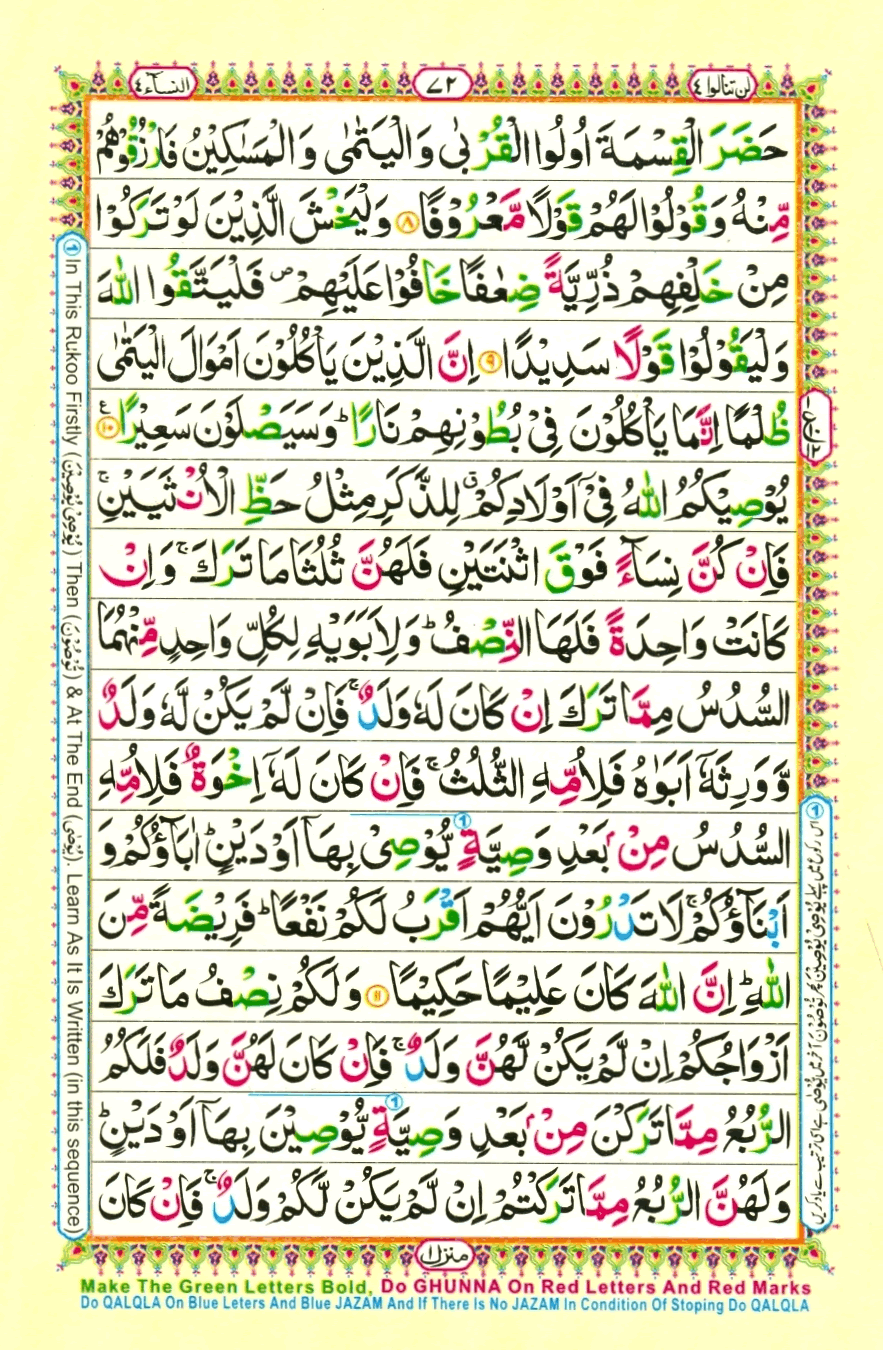 لن تنالوا ٤
٧٢
النسآء ٤
حَضَرَ الْقِسْمَةَ اُولُوا الْقُرْبٰى وَالْيَتٰمٰى وَالْمَسٰكِيْنُ فَارْزُقُوْهُمْ
مِّنْهُ وَقُوْلُوْا لَهُمْ قَوْلًا مَّعْرُوْفًا ۝٨ وَلْيَخْشَ الَّذِيْنَ لَوْ تَرَكُوْا
مِنْ خَلْفِهِمْ ذُرِّيَّةً ضِعٰفًا خَافُوْا عَلَيْهِمْ ۪ فَلْيَتَّقُوا اللّٰهَ
وَلْيَقُوْلُوْا قَوْلًا سَدِيْدًا ۝٩ اِنَّ الَّذِيْنَ يَاْكُلُوْنَ اَمْوَالَ الْيَتٰمٰى
ظُلْمًا اِنَّمَا يَاْكُلُوْنَ فِيْ بُطُوْنِهِمْ نَارًا ؕ وَسَيَصْلَوْنَ سَعِيْرًا ۝١٠ ع
يُوْصِيْكُمُ اللّٰهُ فِيْٓ اَوْلَادِكُمْ ۗ لِلذَّكَرِ مِثْلُ حَظِّ الْاُنْثَيَيْنِ ۚ
فَاِنْ كُنَّ نِسَآءً فَوْقَ اثْنَتَيْنِ فَلَهُنَّ ثُلُثَا مَا تَرَكَ ۚ وَاِنْ
كَانَتْ وَاحِدَةً فَلَهَا النِّصْفُ ؕ وَلِاَبَوَيْهِ لِكُلِّ وَاحِدٍ مِّنْهُمَا
السُّدُسُ مِمَّا تَرَكَ اِنْ كَانَ لَهٗ وَلَدٌ ۚ فَاِنْ لَّمْ يَكُنْ لَّهٗ وَلَدٌ
وَّوَرِثَهٗٓ اَبَوٰهُ فَلِاُمِّهِ الثُّلُثُ ۚ فَاِنْ كَانَ لَهٗٓ اِخْوَةٌ فَلِاُمِّهِ
السُّدُسُ مِنْۢ بَعْدِ وَصِيَّةٍ يُّوْصِيْ بِهَآ اَوْ دَيْنٍ ؕ اٰبَآؤُكُمْ وَ
اَبْنَآؤُكُمْ ۚ لَا تَدْرُوْنَ اَيُّهُمْ اَقْرَبُ لَكُمْ نَفْعًا ؕ فَرِيْضَةً مِّنَ
اللّٰهِ ؕ اِنَّ اللّٰهَ كَانَ عَلِيْمًا حَكِيْمًا ۝١١ وَلَكُمْ نِصْفُ مَا تَرَكَ
اَزْوَاجُكُمْ اِنْ لَّمْ يَكُنْ لَّهُنَّ وَلَدٌ ۚ فَاِنْ كَانَ لَهُنَّ وَلَدٌ فَلَكُمُ
الرُّبُعُ مِمَّا تَرَكْنَ مِنْۢ بَعْدِ وَصِيَّةٍ يُّوْصِيْنَ بِهَآ اَوْ دَيْنٍ ؕ
وَلَهُنَّ الرُّبُعُ مِمَّا تَرَكْتُمْ اِنْ لَّمْ يَكُنْ لَّكُمْ وَلَدٌ ۚ فَاِنْ كَانَ
منزل ١
① In This Rukoo Firstly (يُوْصِيْ يُوْصِيْنَ) Then (تُوْصُوْنَ) & At The End (يُوْصٰى). Learn As It Is Written (in this sequence)
① اس رکوع میں پہلے يُوْصِيْ يُوْصِيْنَ پھر تُوْصُوْنَ آخر میں يُوْصٰى ہے اسی ترتیب سے یاد کریں
Make The Green Letters Bold, Do GHUNNA On Red Letters And Red Marks
Do QALQLA On Blue Leters And Blue JAZAM And If There Is No JAZAM In Condition Of Stoping Do QALQLA